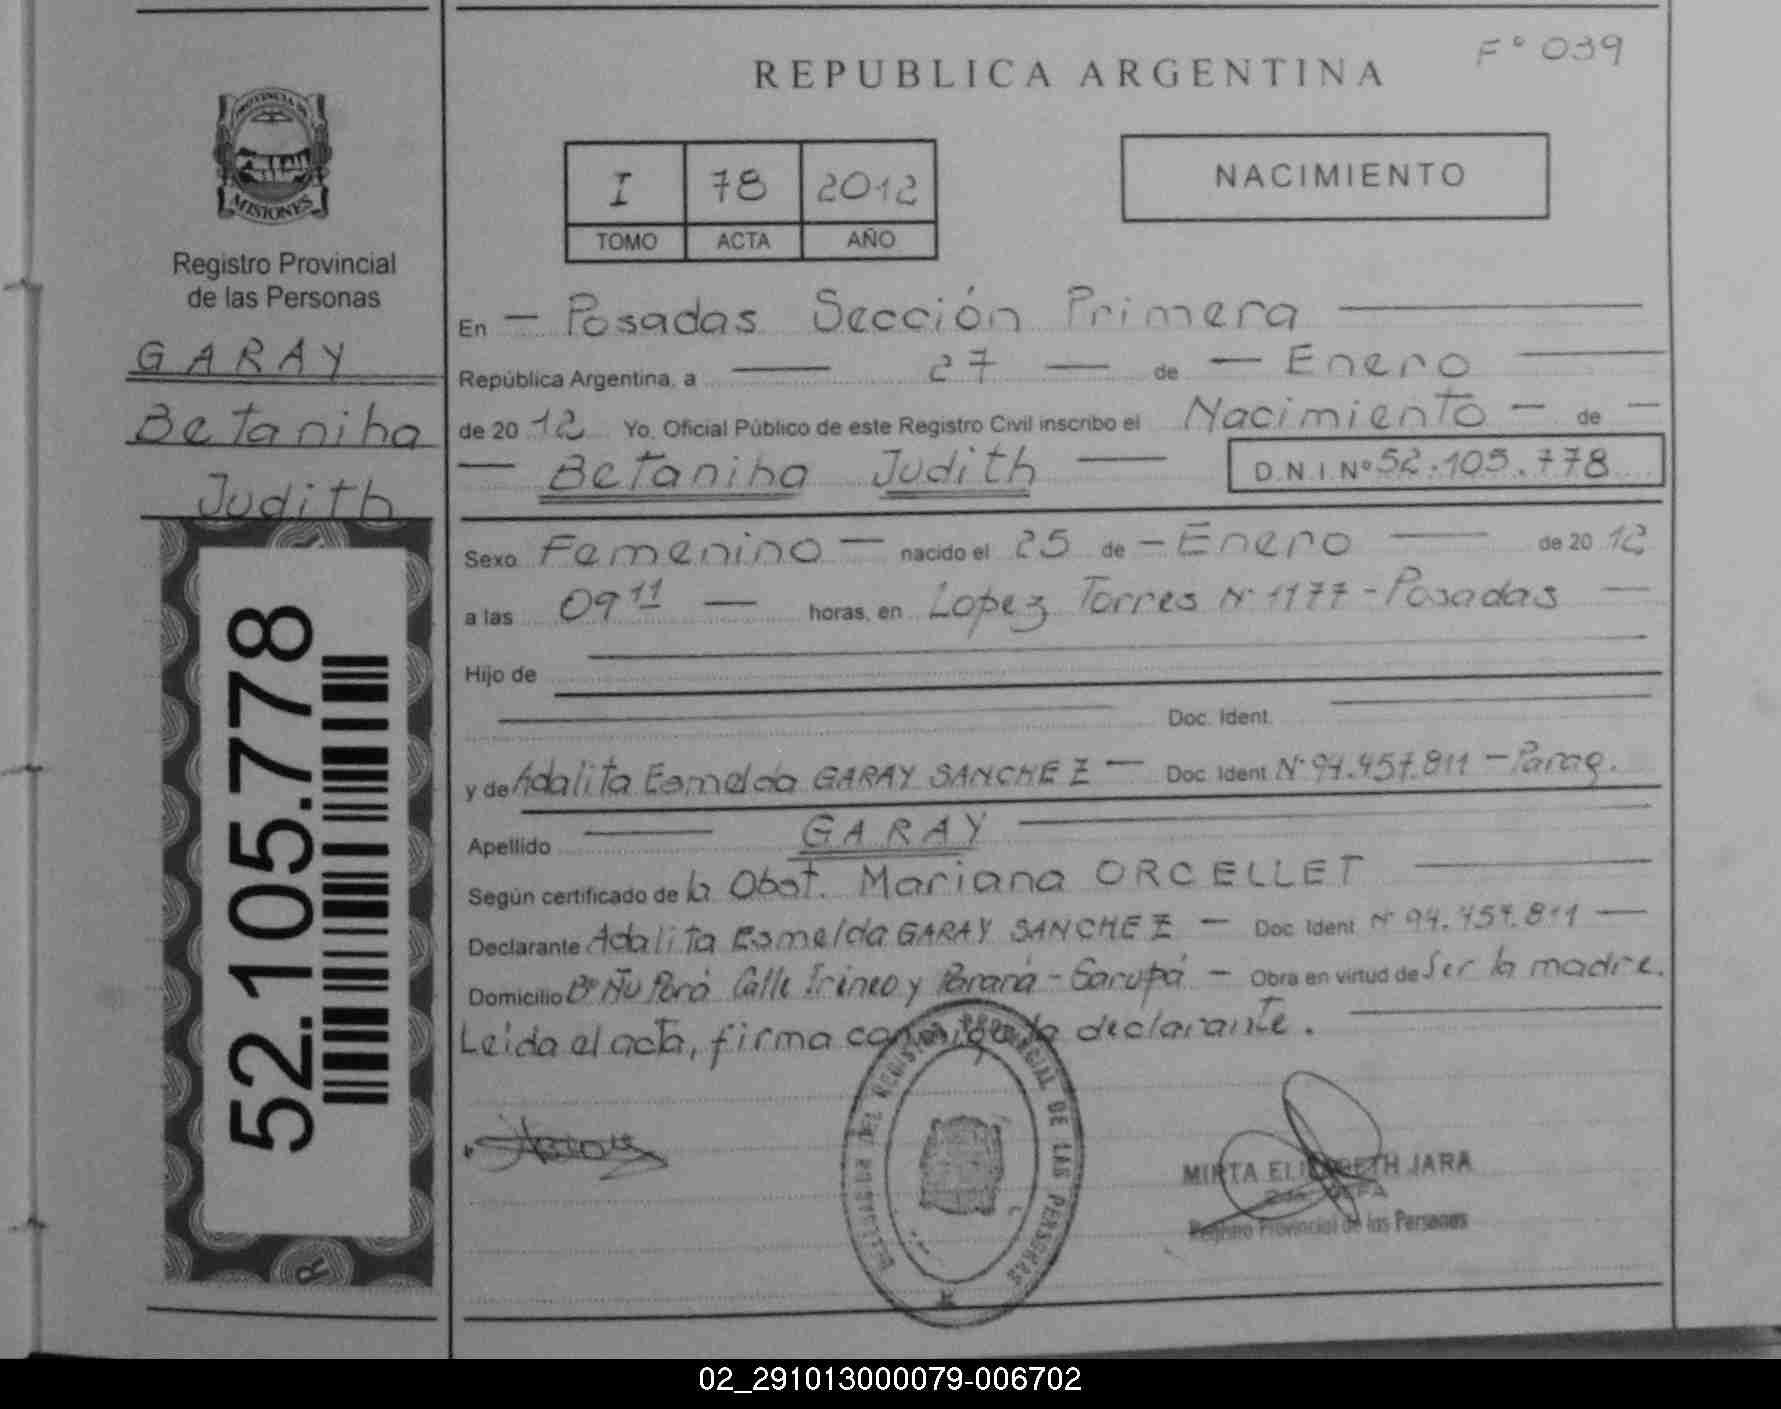 F° 039
REPUBLICA ARGENTINA
PROVINCIA DE
MISIONES
Registro Provincial
de las Personas
GARAY
Betaniha
Judith
52.105.778
I 78 2012
TOMO ACTA AÑO
NACIMIENTO
En — Posadas Sección Primera —
República Argentina, a — 27 — de — Enero —
de 20 12 Yo, Oficial Público de este Registro Civil inscribo el Nacimiento — de —
— Betaniha Judith — D.N.I. Nº 52.105.778
Sexo Femenino — nacido el 25 de — Enero — de 20 12
a las 09 11 — horas, en Lopez Torres Nº 1177 - Posadas —
Hijo de
Doc. Ident.
y de Adalita Esmelda GARAY SANCHEZ — Doc. Ident Nº 94.457.811 — Parag.
Apellido — GARAY —
Según certificado de la Obst. Mariana ORCELLET —
Declarante Adalita Esmelda GARAY SANCHEZ — Doc. Ident Nº 94.457.811 —
Domicilio Bº Ñu Porá Calle Irineo y Paraná - Garupá — Obra en virtud de Ser la madre.
Leida el acta, firma conmigo la declarante. —
DEL REGISTRO PROVINCIAL DE LAS PERSONAS
MIRTA ELIZABETH JARA
Registro Provincial de las Personas
R
02_291013000079-006702